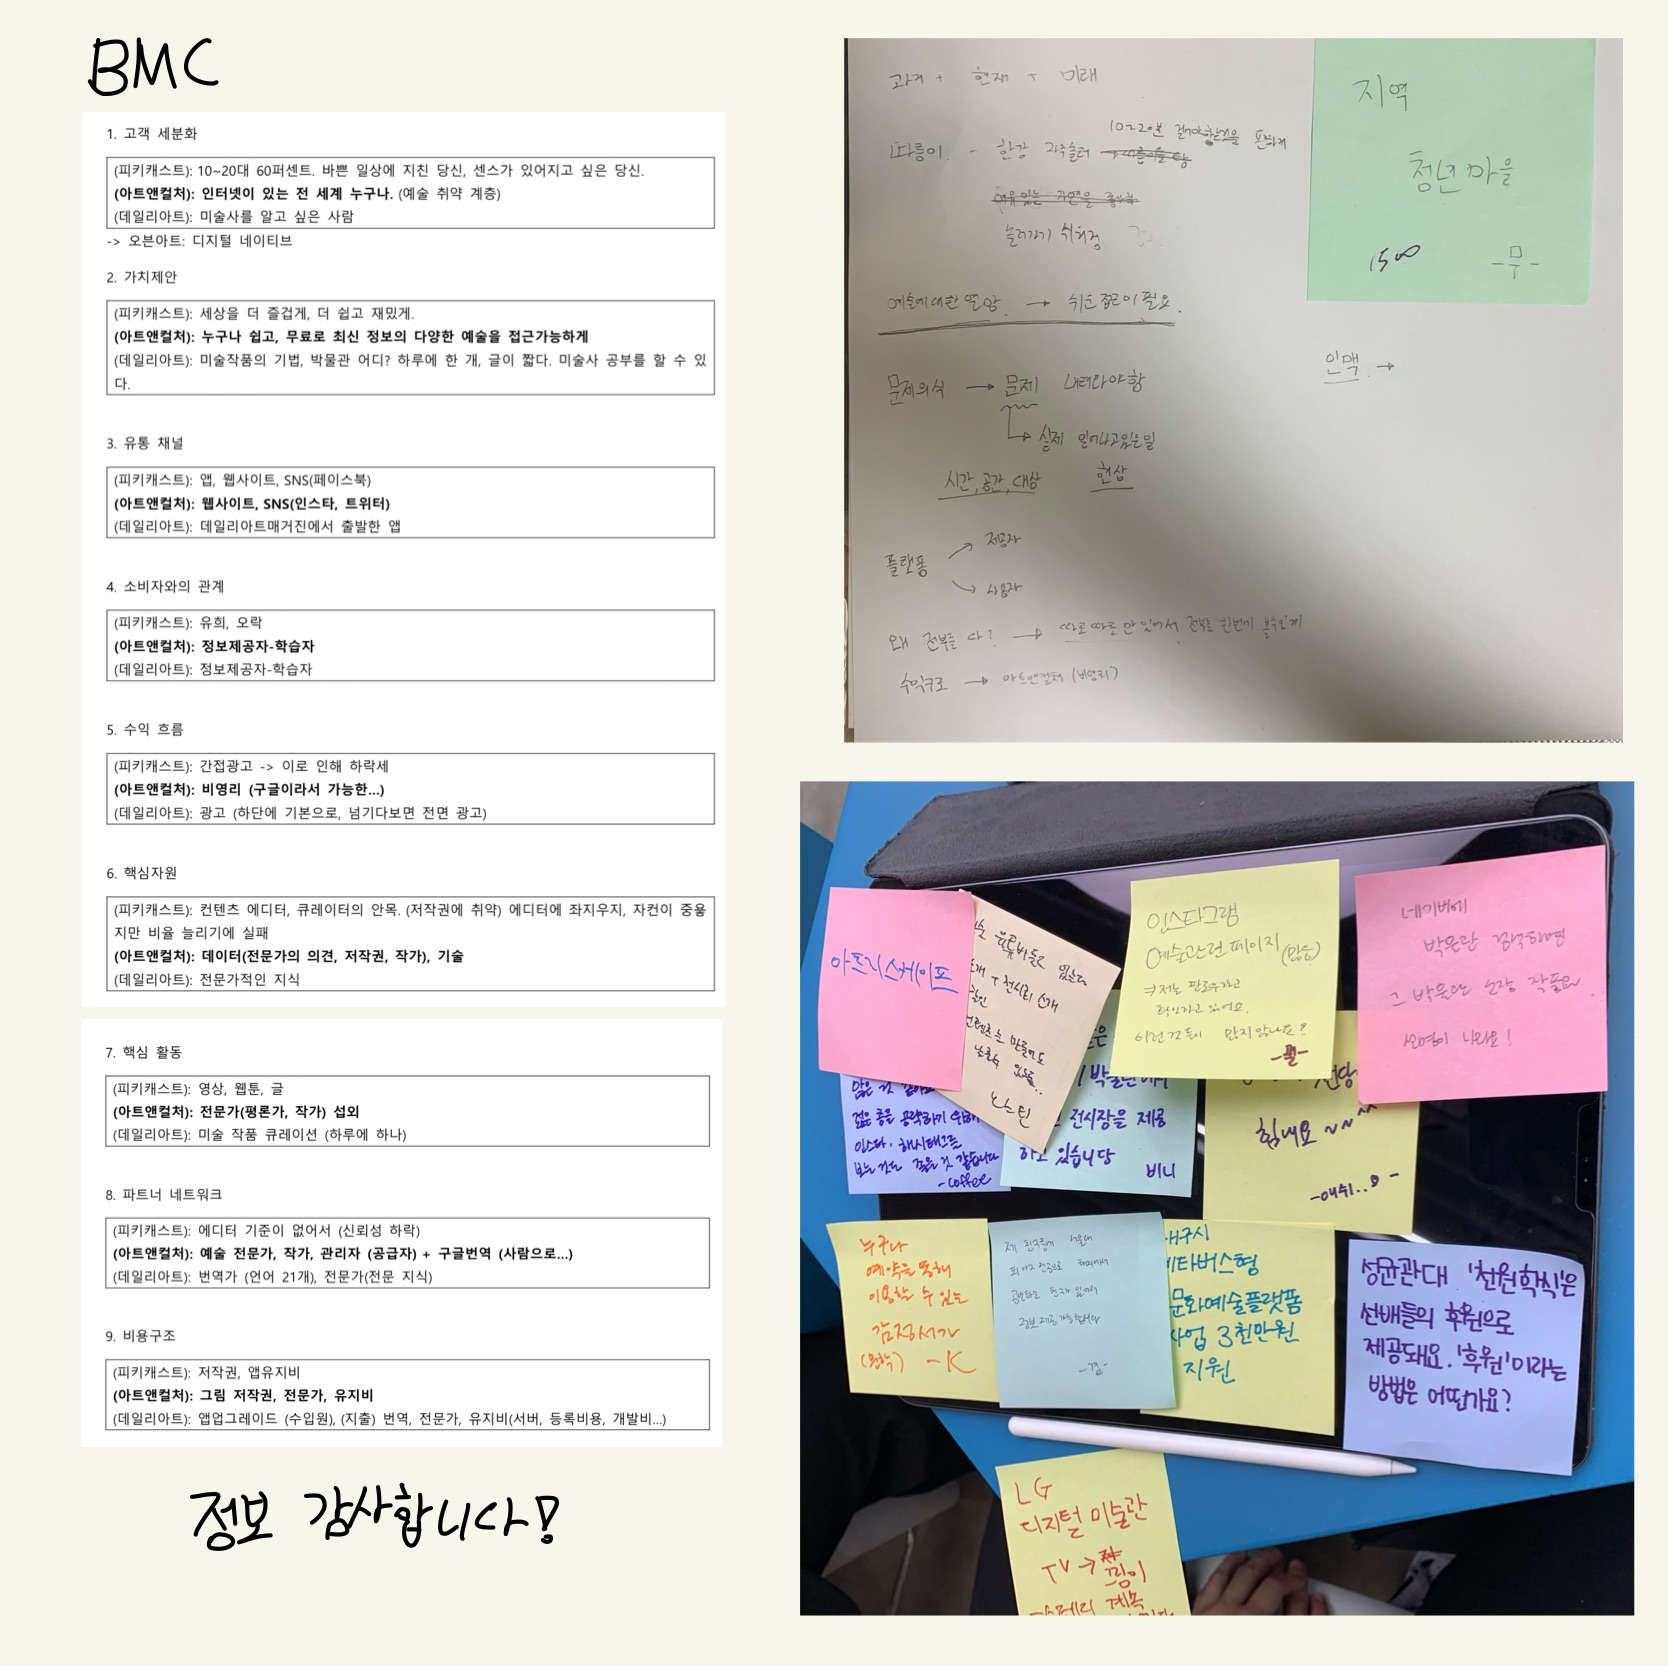 BMC
1. 고객 세분화
(피키캐스트): 10~20대 60퍼센트. 바쁜 일상에 지친 당신, 센스가 있어지고 싶은 당신.
(아트앤컬처): 인터넷이 있는 전 세계 누구나. (예술 취약 계층)
(데일리아트): 미술사를 알고 싶은 사람
-> 오븐아트: 디지털 네이티브
2. 가치제안
(피키캐스트): 세상을 더 즐겁게, 더 쉽고 재밌게.
(아트앤컬처): 누구나 쉽고, 무료로 최신 정보의 다양한 예술을 접근가능하게
(데일리아트): 미술작품의 기법, 박물관 어디? 하루에 한 개, 글이 짧다. 미술사 공부를 할 수 있
다.
3. 유통 채널
(피키캐스트): 앱, 웹사이트, SNS(페이스북)
(아트앤컬처): 웹사이트, SNS(인스타, 트위터)
(데일리아트): 데일리아트매거진에서 출발한 앱
4. 소비자와의 관계
(피키캐스트): 유희, 오락
(아트앤컬처): 정보제공자-학습자
(데일리아트): 정보제공자-학습자
5. 수익 흐름
(피키캐스트): 간접광고 -> 이로 인해 하락세
(아트앤컬처): 비영리 (구글이라서 가능한...)
(데일리아트): 광고 (하단에 기본으로, 넘기다보면 전면 광고)
6. 핵심자원
(피키캐스트): 컨텐츠 에디터, 큐레이터의 안목. (저작권에 취약) 에디터에 좌지우지, 자컨이 중욯
지만 비율 늘리기에 실패
(아트앤컬처): 데이터(전문가의 의견, 저작권, 작가), 기술
(데일리아트): 전문가적인 지식
7. 핵심 활동
(피키캐스트): 영상, 웹툰, 글
(아트앤컬처): 전문가(평론가, 작가) 섭외
(데일리아트): 미술 작품 큐레이션 (하루에 하나)
8. 파트너 네트워크
(피키캐스트): 에디터 기준이 없어서 (신뢰성 하락)
(아트앤컬처): 예술 전문가, 작가, 관리자 (공급자) + 구글번역 (사람으로...)
(데일리아트): 번역가 (언어 21개), 전문가(전문 지식)
9. 비용구조
(피키캐스트): 저작권, 앱유지비
(아트앤컬처): 그림 저작권, 전문가, 유지비
(데일리아트): 앱업그레이드 (수입원), (지출) 번역, 전문가, 유지비(서버, 등록비용, 개발비...)
정보 감사합니다!
과거 + 현재 + 미래
따릉이 - 한강
예술에 대한 열망 → 쉬운 접근이 필요.
문제의식 → 문제 내려놔야함
실제 일어나고있는일
시간, 공간, 대상 현상
플랫폼
제공자
사용자
왜 전부를 다? → 따로따로만 있어서 전부를 한번에 볼수있게
수익구조 → 아트앤컬쳐 (비영리)
지역
청년마을
-무-
인맥 →
아트리스케이프
인스타그램
예술관련 페이지 (많음)
저는 팔로우하고
이런 건 들이 많지 않나요?
네이버에
박물관 검색하면
그 박물관 소장 작품
설명이 나와요!
젊은 층을 공략하기 위해
인스타, 해시태그를
보는 것도 좋을 것 같습니다
-coffee
박물관에서
전시장을 제공
하고 있습니당
비니
힘내요 ~~
누구나
예약을 통해
이용할 수 있는
감정서가
-K
대구시
메타버스형
문화예술플랫폼
사업 3천만원
지원
성균관대 '천원학식'은
선배들의 후원으로
제공돼요. '후원'이라는
방법은 어떤가요?
LG
디지털 미술관
TV →